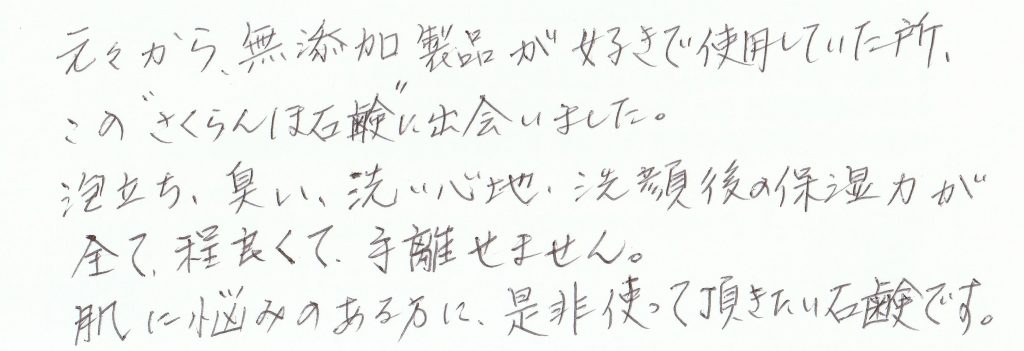 元々から、無添加製品が好きで使用していた所、
この"さくらんぼ石鹸"に出会いました。
泡立ち、臭い、洗い心地、洗顔後の保湿力が
全て、程良くて、手離せません。
肌に悩みのある方に、是非使って頂きたい石鹸です。